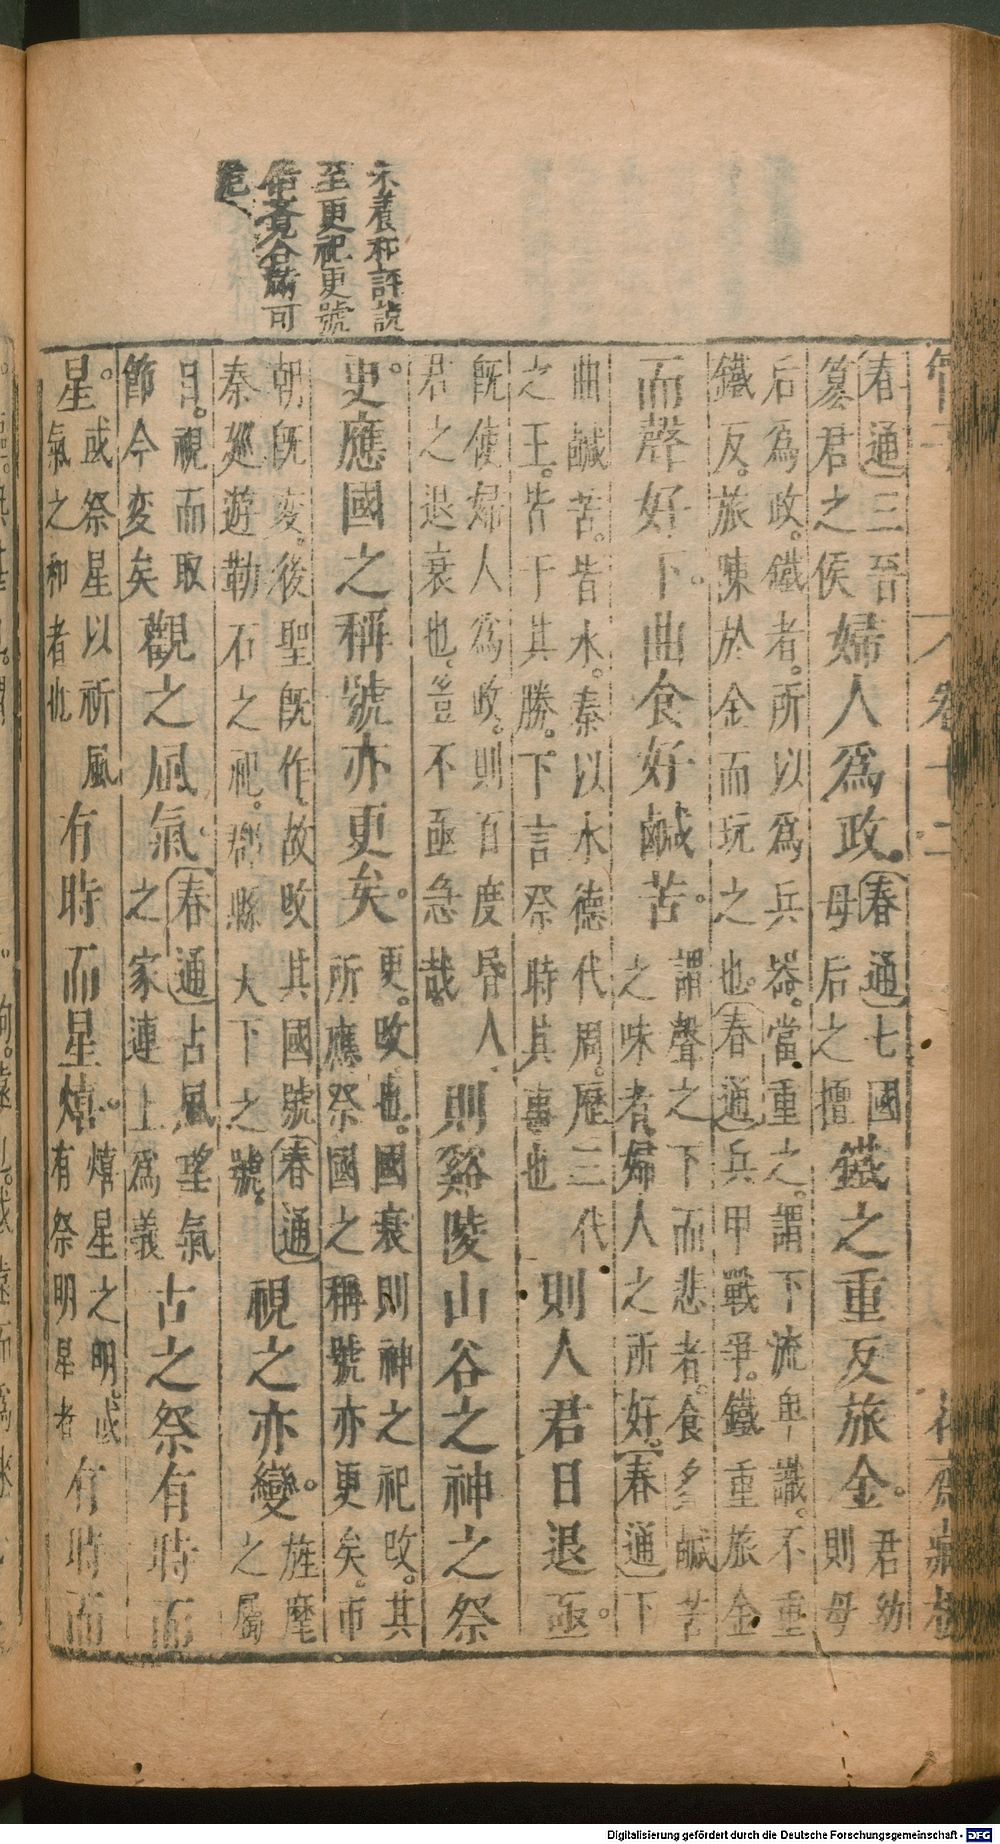 朱養和評說
至更祀更號
管子 卷十二 花齋藏板
春通三晉婦人爲政。春通七國鐵之重反旅金。君幼
篡君之侯 母后之擅 則母
后爲政。鐵者。所以爲兵器。當重之。謂下流卑識。不重
鐵反。旅陳於金而玩之也。春通兵甲戰爭。鐵重旅金
而聲好下。曲食好鹹苦。謂聲之下而悲者。食多鹹苦
之味者。婦人之所好。春通下
曲鹹苦。皆水。秦以水德代周。歷三代則人君日退亟。
之王。皆于其勝。下言祭時其事也
既使婦人爲政。則百度昏人則谿陵山谷之神之祭
君之退衰也。豈不亟急哉。
更。應國之稱號亦更矣。更。改也。國衰則神之祀改。其
所應祭國之稱號亦更矣。市
朝既変。後聖既作故改其國號春通視之亦變。旌麾
秦廵遊勒石之祀。郡縣大下之號。之屬
目。視而取觀之風氣。春通占風望氣古之祭有時而
節今変矣 之家連上爲義
星。或祭星以祈風有時而星熺。熺星之明或有時而
氣之和者也 有祭明星者
Digitalisierung gefördert durch die Deutsche Forschungsgemeinschaft - DFG